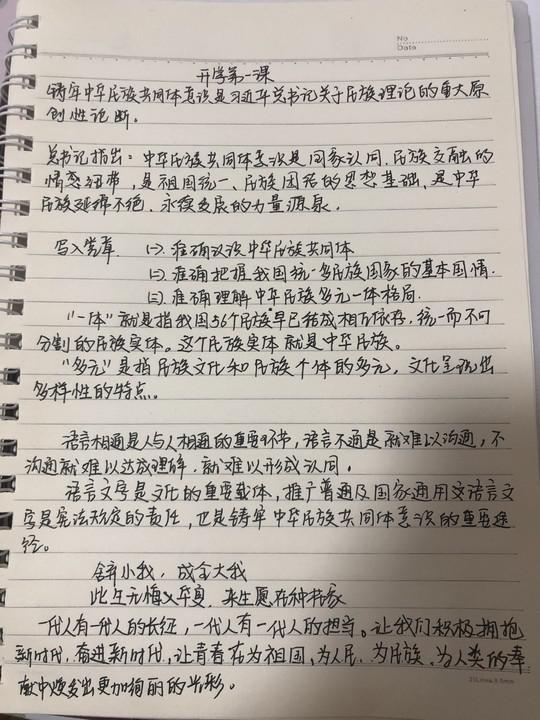 No
Date
开学第一课
铸牢中华民族共同体意识是习近平总书记关于民族理论的重大原
创性论断。
总书记指出：中华民族共同体意识是国家认同、民族交融的
情感纽带，是祖国统一、民族团结的思想基础，是中华
民族延绵不绝、永续发展的力量源泉。
写入党章 (一). 准确认识中华民族共同体
(二). 准确把握我国统一多民族国家的基本国情.
(三). 准确理解中华民族多元一体格局.
"一体"就是指我国56个民族早已结成相互依存，统一而不可
分割的民族实体。这个民族实体就是中华民族。
"多元"是指民族文化和民族个体的多元，文化呈现出
多样性的特点。
语言相通是人与人相通的重要环节，语言不通是就难以沟通，不
沟通就难以达成理解，就难以形成认同。
语言文字是文化的重要载体，推广普通及国家通用文语言文
字是宪法规定的责任，也是铸牢中华民族共同体意识的重要途
径。
舍弃小我，成全大我
此生无悔入华夏，来生愿在种花家
一代人有一代人的长征，一代人有一代人的担当。让我们积极拥抱
新时代，奋进新时代，让青春在为祖国，为人民，为民族，为人类的奉
献中焕发出更加绚丽的光彩。